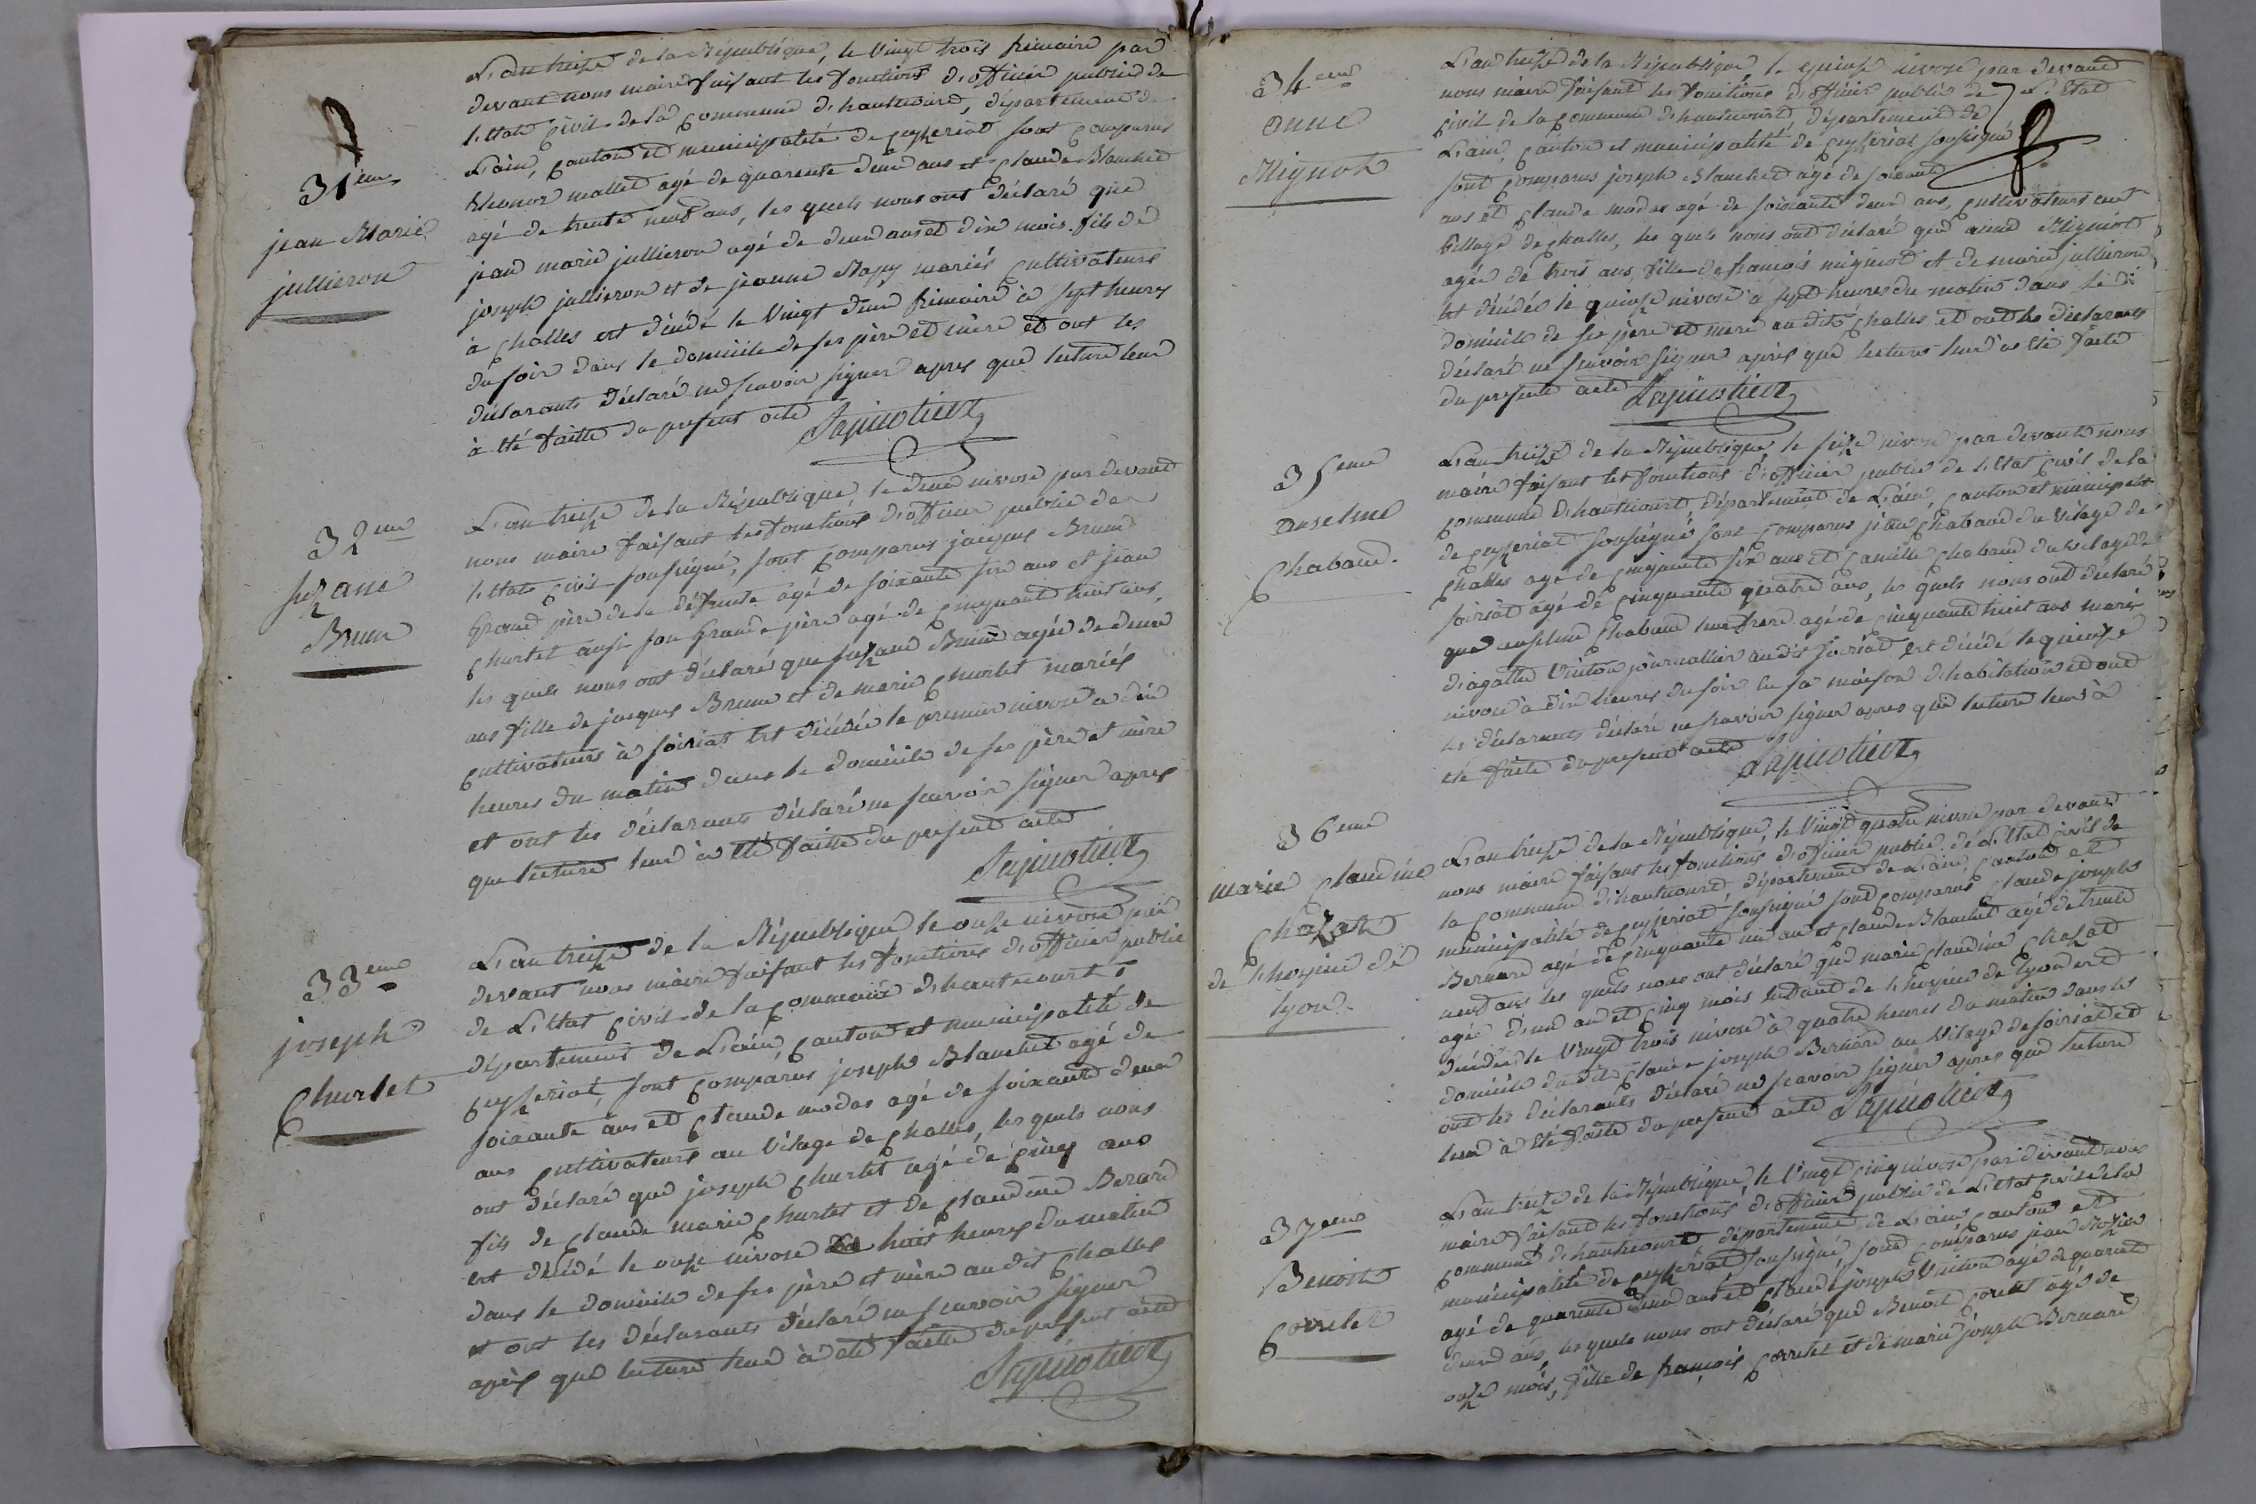 31eme
jean Marie
jullieron
L'an treize de la République, le vingt trois frimaire par
devant nous maire faisant les fonctions d'officier public de
l'Etat civil de la commune d'hautecourt, département de
L'ain, canton et municipalité de ceyzeriat sont comparus
Eleonor mallet agé de quarente deux ans et claude Blanchet
agé de trente neuf ans, les quels nous ont déclaré que
jean marie jullieron agé de deux ans et dix mois fils de
joseph jullieron et de jeanne mariés cultivateurs
à challes est décédé le vingt deux frimaire à sept heures
du soir dans le domicile de ses père et mère et ont les
déclarants déclaré ne scavoir signer apres que lecture leur
à été faitte du present acte
32eme
suzane
Brun
L'an treize de la République, le deux nivose par devant
nous maire faisant les fonctions d'officier public de
l'Etat civil soussigné, sont comparus jacques Brun
Grand père de la défunte agé de soixante six ans et jean
churlet aussi son Grand père agé de cinquante huit ans,
les quels nous ont déclaré que suzane Brun agée de deux
ans fille de jacques Brun et de marie churlet mariés
cultivateurs à soiriat est décédée le premier nivose à dix
heures du matin dans le domicile de ses père et mère
et ont les déclarants déclaré ne scavoir signer apres
que lecture leur à été faitte du present acte
33eme
joseph
Churlet
L'an treize de la République le onze nivose par
devant nous maire faisant les fonctions d'officier public
de L'Etat civil de la commune d'hautecourt
département de L'ain, canton et municipalité de
ceyzeriat, sont comparus joseph Blanchet agé de
soixante ans et claude modas agé de soixante deux
ans cultivateurs au vilage de challes, les quels nous
ont déclaré que joseph churlet agé de cinq ans
fils de claude marie churlet et de claudine Berard
est décédé le onze nivose à huit heures du matin
dans le domicile de ses père et mère au dit challes
et ont les déclarants déclaré ne scavoir signer
après que lecture leur à été faitte du present acte
34eme
anne
Mignot
L'an treize de la République le quinze nivose par devant
nous maire faisant les fonctions d'officier public de L'Etat
civil de la commune d'hautecourt, département de
L'ain, canton et municipalité de ceyzeriat soussigné
sont comparus joseph Blanchet agé de soixante
ans et claude modas agé de soixante deux ans, cultivateurs au
village de challes, les quels nous ont déclaré que anne Mignot
agée de trois ans, fille de françois mignot et de marie jullieron
est décédée le quinze nivose à sept heures du matin dans le di
domicile de ses père et mere au dit challes et ont les déclarants
déclaré ne scavoir signer après que lecture leur à été faite
du present acte
35eme
anselme
Chabaud
L'an treize de la République le seize nivose par devant nous
maire faisant les fonctions d'officier public de l'Etat civil de la
commune d'hautecourt, département de L'ain, canton et municipalité
de ceyzeriat soussigné sont comparus jean chabaud du vilage de
challes agé de cinquante six ans et Camille chabaud du vilage de
soiriat agé de cinquante quatre ans, les quels nous ont déclaré
que anselme chabaud leur frere agé de cinquante huit ans marié
d'agathe Vuiton journallier au dit soiriat est décédé le quinze
nivose à dix heures du soir en sa maison d'habitation et ont
les déclarants déclaré ne scavoir signer apres que lecture leur à
été faite du present acte
36eme
marie Claudine
Chazat
de L'hospice de
lyon
L'an treize de la République, le vingt quatre nivose par devant
nous maire faisant les fonctions d'officier public de L'Etat civil de
la commune d'hautecourt, département de L'ain, canton et
municipalité de ceyzeriat soussigné sont comparus claude joseph
Bernard agé de cinquante un an et claude Blanchet agé de trente
neuf ans les quels nous ont déclaré que marie claudine chazat
agée d'un an et cinq mois Enfant de L'hospice de Lyon est
décédée le vingt trois nivose à quatre heures du matin dans le
domicile du dit claude joseph Bernard au vilage de soiriat et
ont les déclarants déclaré ne scavoir signer apres que lecture
leur à été faite du present acte
37eme
Benoit
Corretet
L'an treize de la République, le vingt cinq nivose par devant nous
maire faisant les fonctions d'officier public de L'Etat civil de la
commune d'hautecourt département de L'ain, canton et
municipalité de ceyzeriat soussigné, sont comparus jean
agé de quarente deux ans et claude joseph Vuiton agé de quarente
deux ans, les quels nous ont déclaré que Benoit agé de
onze mois, fille de françois et de marie joseph Bernard